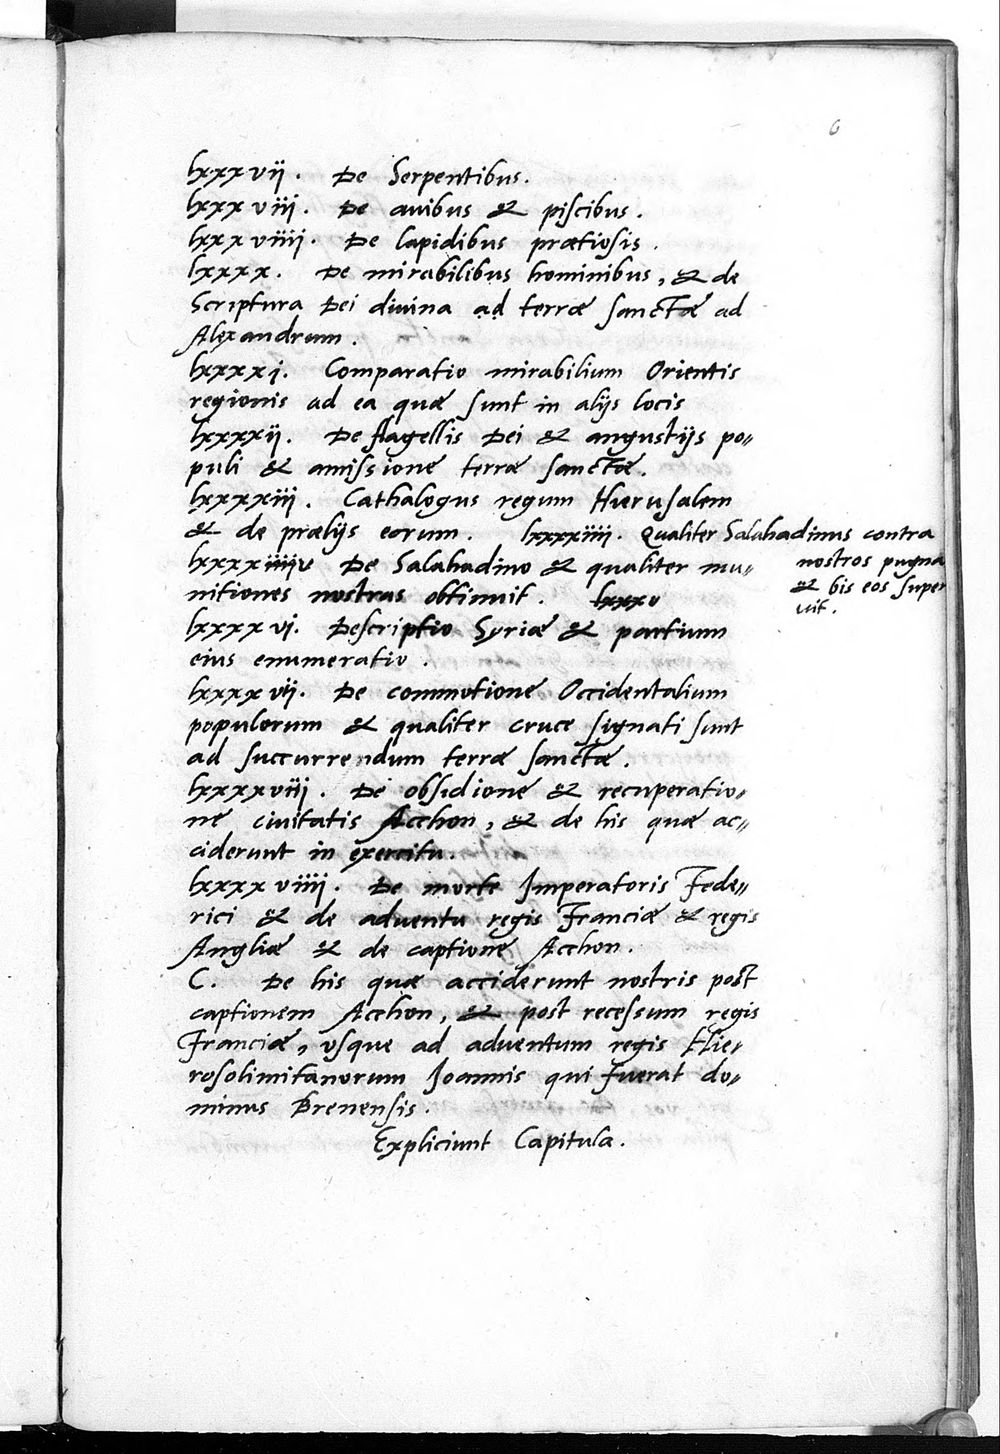 6
lxxxvii. De Serpentibus.
lxxxviii. De auibus & piscibus.
lxxxviiii. De lapidibus prætiosis.
lxxxx. De mirabilibus hominibus, & de
Scriptura Dei diuina ad terræ sanctæ ad
Alexandrum.
lxxxxj. Comparatio mirabilium Orientis
regionis ad ea quæ sunt in alijs locis
lxxxxij. De flagellis Dei & angustijs po„
puli & amissione terræ sanctæ.
lxxxxiij. Cathalogus regum Hierusalem
& de prælijs eorum. lxxxxiiij. Qualiter Salahadinus contra
nostros pugna
& bis eos super
uit.
lxxxxiiiijv De Salahadino & qualiter mu„
nitiones nostras obtinuit. lxxxv
lxxxxvj. Descriptio Syriæ & partium
eius enumeratio.
lxxxxvij. De commotione Occidentalium
populorum & qualiter cruce signati sunt
ad succurrendum terræ sanctæ.
lxxxxviij. De obsidione & recuperatio„
ne ciuitatis Acchon, & de his quæ ac„
ciderunt in exercitu.
lxxxxviiij. De morte Imperatoris Fede„
rici & de aduentu regis Franciæ & regis
Angliæ & de captione Acchon.
C. De his quæ acciderunt nostris post
captionem Acchon, & post recessum regis
Franciæ, vsque ad aduentum regis Hie„
rosolimitanorum Joannis qui fuerat do„
minus Brenensis.
Expliciunt Capitula.